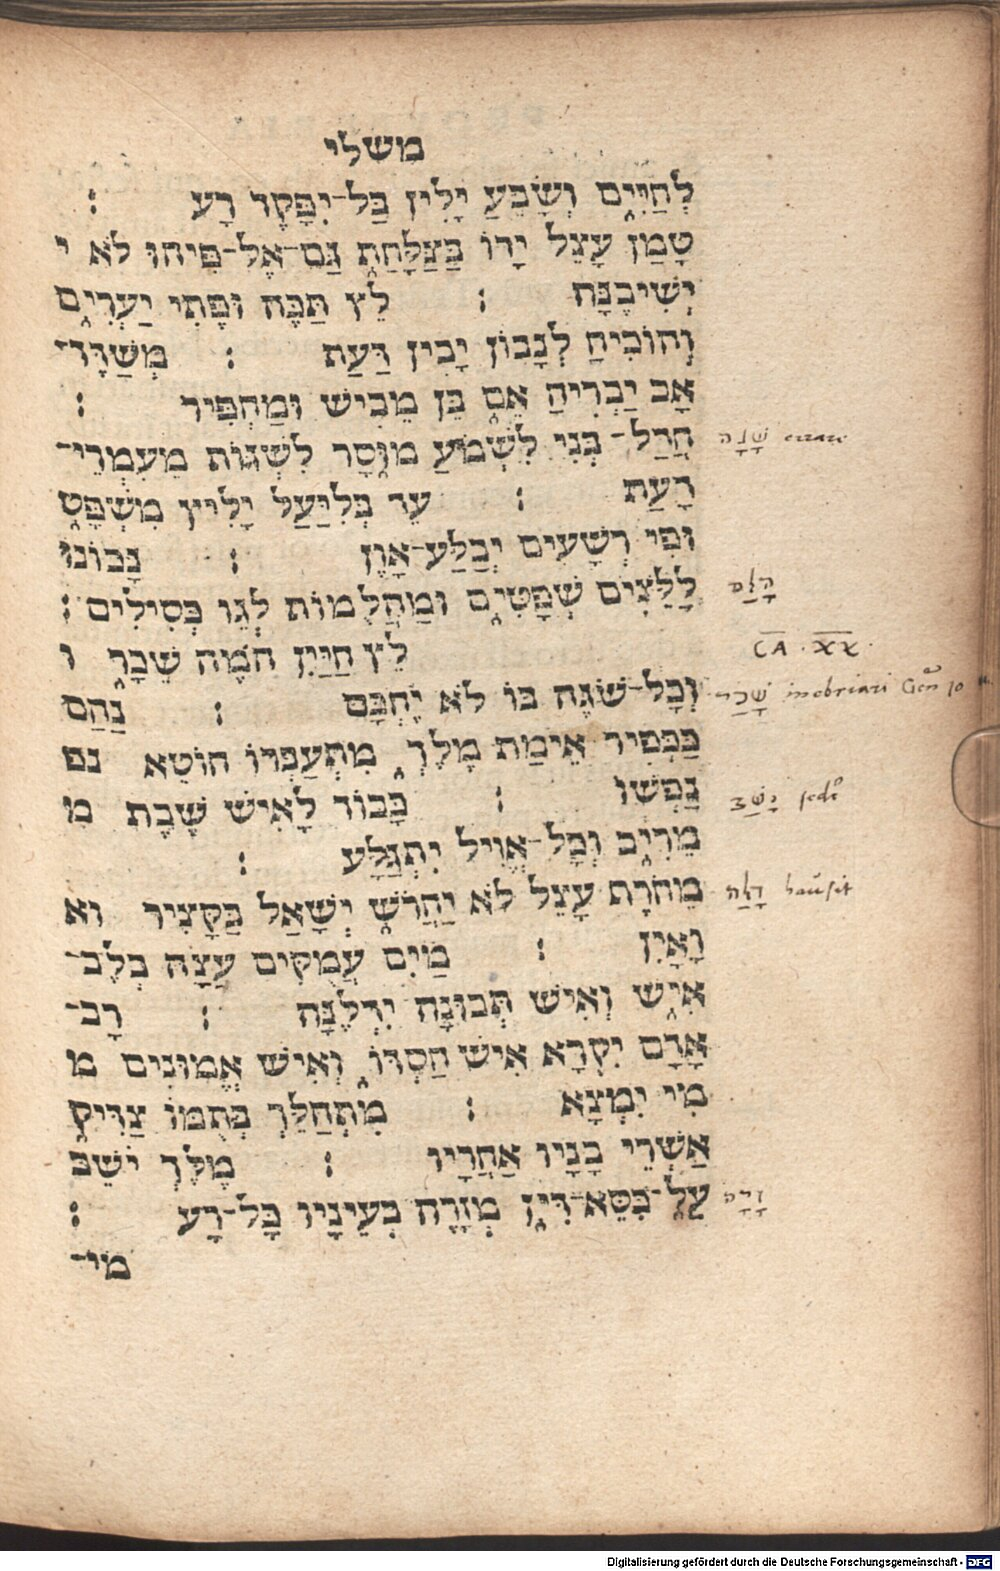 משלי
לְחַיִּים וְשָׂבֵעַ יָלִין בַּל־יִפָּקֶד רָע :
טָמַן עָצֵל יָדוֹ בַּצַּלָּחַת גַּם־אֶל־פִּיהוּ לֹא י
יְשִׁיבֶנָּה : לֵץ תַּכֶּה וּפֶתִי יַעְרִים
וְהוֹכִיחַ לְנָבוֹן יָבִין דַּעַת : מְשַׁדֶּד־
אָב יַבְרִיחַ אֵם בֵּן מֵבִישׁ וּמַחְפִּיר :
חֲדַל־בְּנִי לִשְׁמֹעַ מוּסָר לִשְׁגוֹת מֵאִמְרֵי־
שָׁגָה errare
דָעַת : עֵד בְּלִיַּעַל יָלִיץ מִשְׁפָּט
וּפִי רְשָׁעִים יְבַלַּע־אָוֶן : נָכוֹנוּ
לַלֵּצִים שְׁפָטִים וּמַהֲלֻמוֹת לְגֵו כְּסִילִים :
הָלַם
לֵץ הַיַּיִן הֹמֶה שֵׁכָר ו
CA · XX ·
וְכָל־שֹׁגֶה בּוֹ לֹא יֶחְכָּם : נַהַם
שָׁכַר inebriari Gen 10
כַּכְּפִיר אֵימַת מֶלֶךְ מִתְעַבְּרוֹ חוֹטֵא נפ
נַפְשׁוֹ : כָּבוֹד לָאִישׁ שֶׁבֶת מ
יָשַׁב
מֵרִיב וְכָל־אֱוִיל יִתְגַּלָּע :
מֵחֹרֶת עָצֵל לֹא יַחֲרֹשׁ יְשָׁאַל בַּקָּצִיר וא
דָלָה hausit
וָאָיִן : מַיִם עֲמֻקִּים עֵצָה בְלֶב־
אִישׁ וְאִישׁ תְּבוּנָה יִדְלֶנָּה : רָב־
אָדָם יִקְרָא אִישׁ חַסְדּוֹ וְאִישׁ אֱמוּנִים מ
מִי יִמְצָא : מִתְהַלֵּךְ בְּתֻמּוֹ צַדִּיק
אַשְׁרֵי בָנָיו אַחֲרָיו : מֶלֶךְ יֹשֵׁב
עַל־כִּסֵּא־דִין מְזָרֶה בְעֵינָיו כָּל־רָע :
זָרָה
מי־
Digitalisierung gefördert durch die Deutsche Forschungsgemeinschaft - DFG